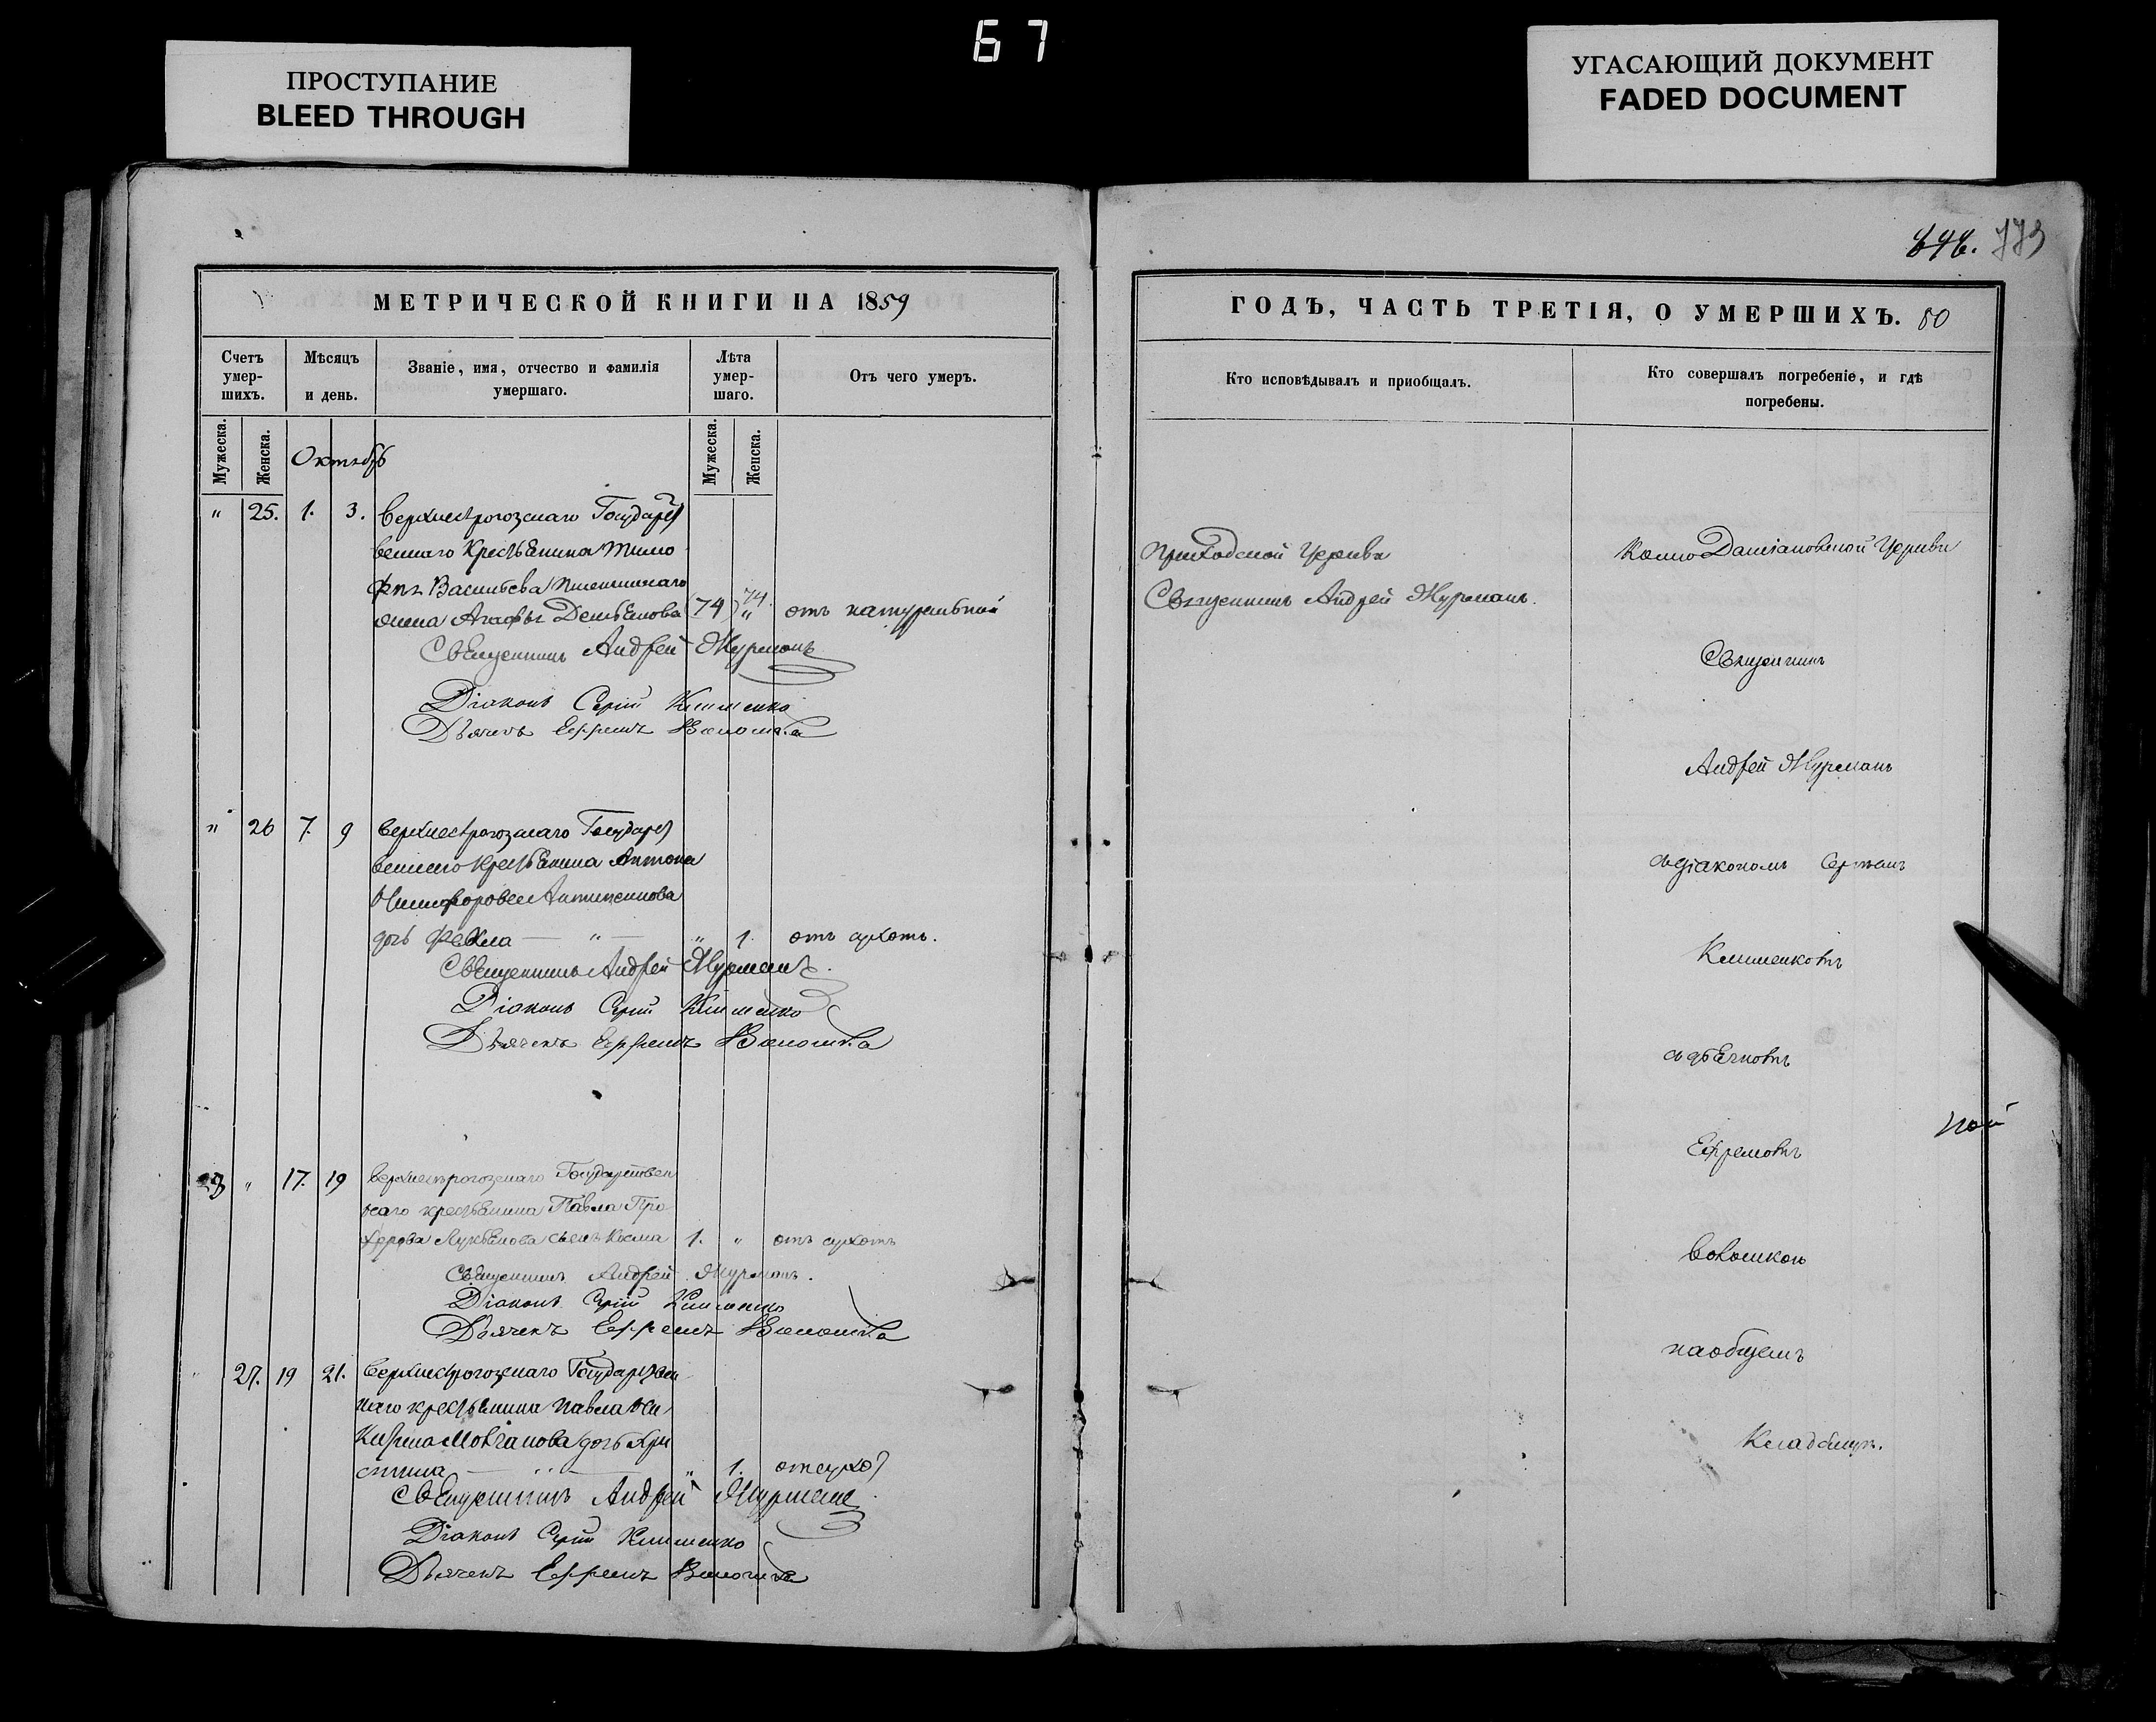 67
ПРОСТУПАНИЕ
BLEED THROUGH
УГАСАЮЩИЙ ДОКУМЕНТ
FADED DOCUMENT
773
МЕТРИЧЕСКОЙ КНИГИ НА 1859
Счетъ умер-шихъ.
Мѣсяцъ и день.
Званіе, имя, отчество и фамилія умершаго.
Лѣта умер-шаго.
Отъ чего умеръ.
Мужеска.
Женска.
Октябрь
Мужеска.
Женска.
" 25. 1. 3. Верхнестрогозскаго Государст
веннаго Крестьянина Тимо
фея Васильева
жена Агафья Демьянова 74 74 " отъ натуральной
Священникъ Андрей Журманъ
Діаконъ Сергій Клименко
Дьячекъ Ефремъ Волошка
" 26 7. 9 Верхнестрогозскаго Государст
веннаго Крестьянина Антона
Никифорова
дочь Фекла — " — " 1. отъ сухотъ.
Священникъ Андрей Журманъ.
Діаконъ Сергій Клименко
Дьячекъ Ефремъ Волошка
23 " 17. 19 Верхнестрогозскаго Государствен
наго крестьянина Павла Про
хорова Лукьянова сынъ Косма 1. " отъ сухотъ
Священникъ Андрей Журманъ.
Діаконъ Сергій Клименко
Дьячекъ Ефремъ Волошка
" 27. 19 21. Верхнестрогозскаго Государствен
наго крестьянина Павла
Мовчанова дочь Хри
стина — " — " 1. отъ сухот
Священникъ Андрей Журманъ
Діаконъ Сергій Клименко
Дьячекъ Ефремъ Волошка
ГОДЪ, ЧАСТЬ ТРЕТІЯ, О УМЕРШИХЪ. 80
Кто исповѣдывалъ и приобщалъ.
Кто совершалъ погребеніе, и гдѣ погребены.
Приходской Церкви
Священникъ Андрей Журманъ.
Космо Даміановской Церкви
Священникъ
Андрей Журманъ
съ діакономъ Сергіемъ
Клименковъ
съ дьячковъ
Ефремовъ
Волошкою
на общемъ
ной
Кладбищѣ.